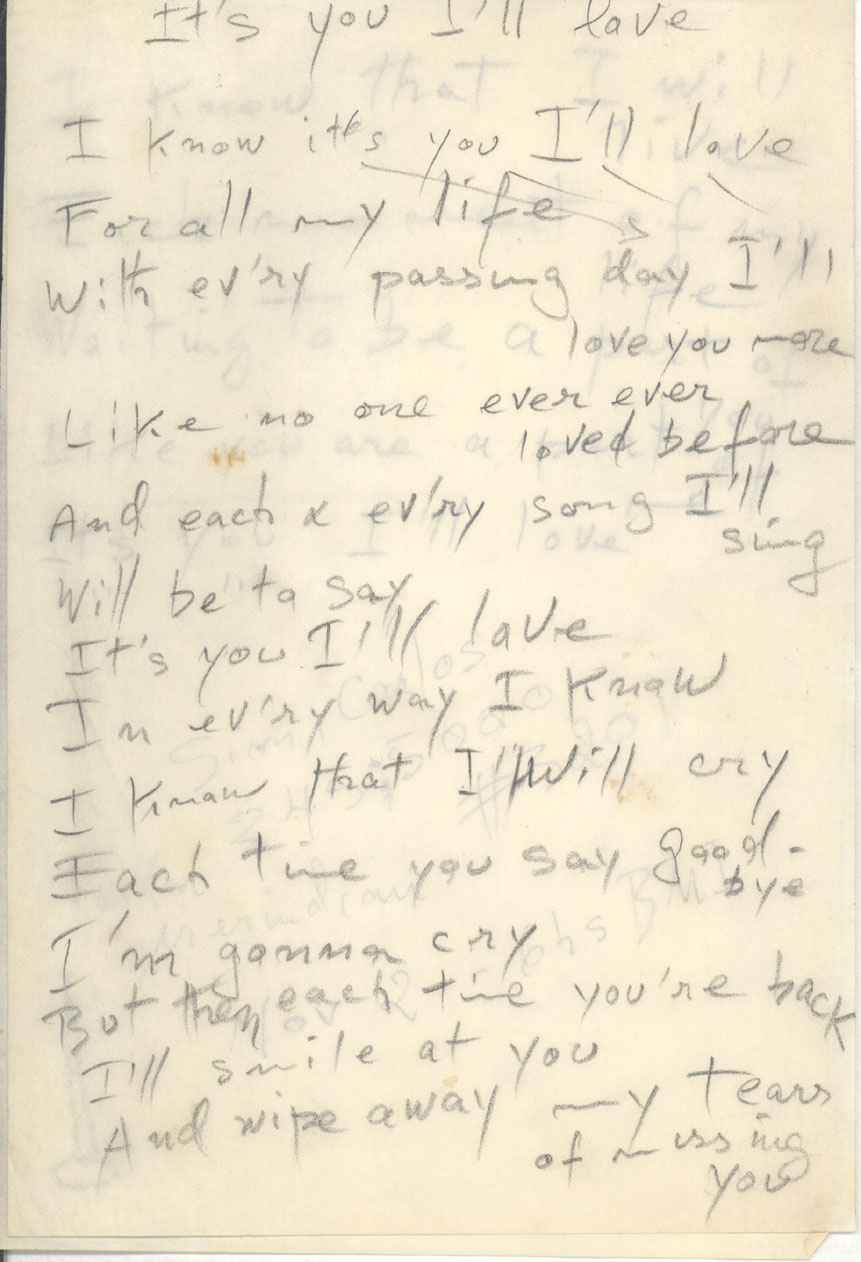 It's you I'll love
I know it's you I'll love
For all my life
With ev'ry passing day I'll
love you more
Like no one ever ever
loved before
And each & ev'ry song I'll
sing
Will be to say
It's you I'll love
In ev'ry way I know
I know that I'll Will cry
Each time you say good-
bye
I'm gonna cry
But then each time you're back
I'll smile at you
And wipe away my tears
of missing
you